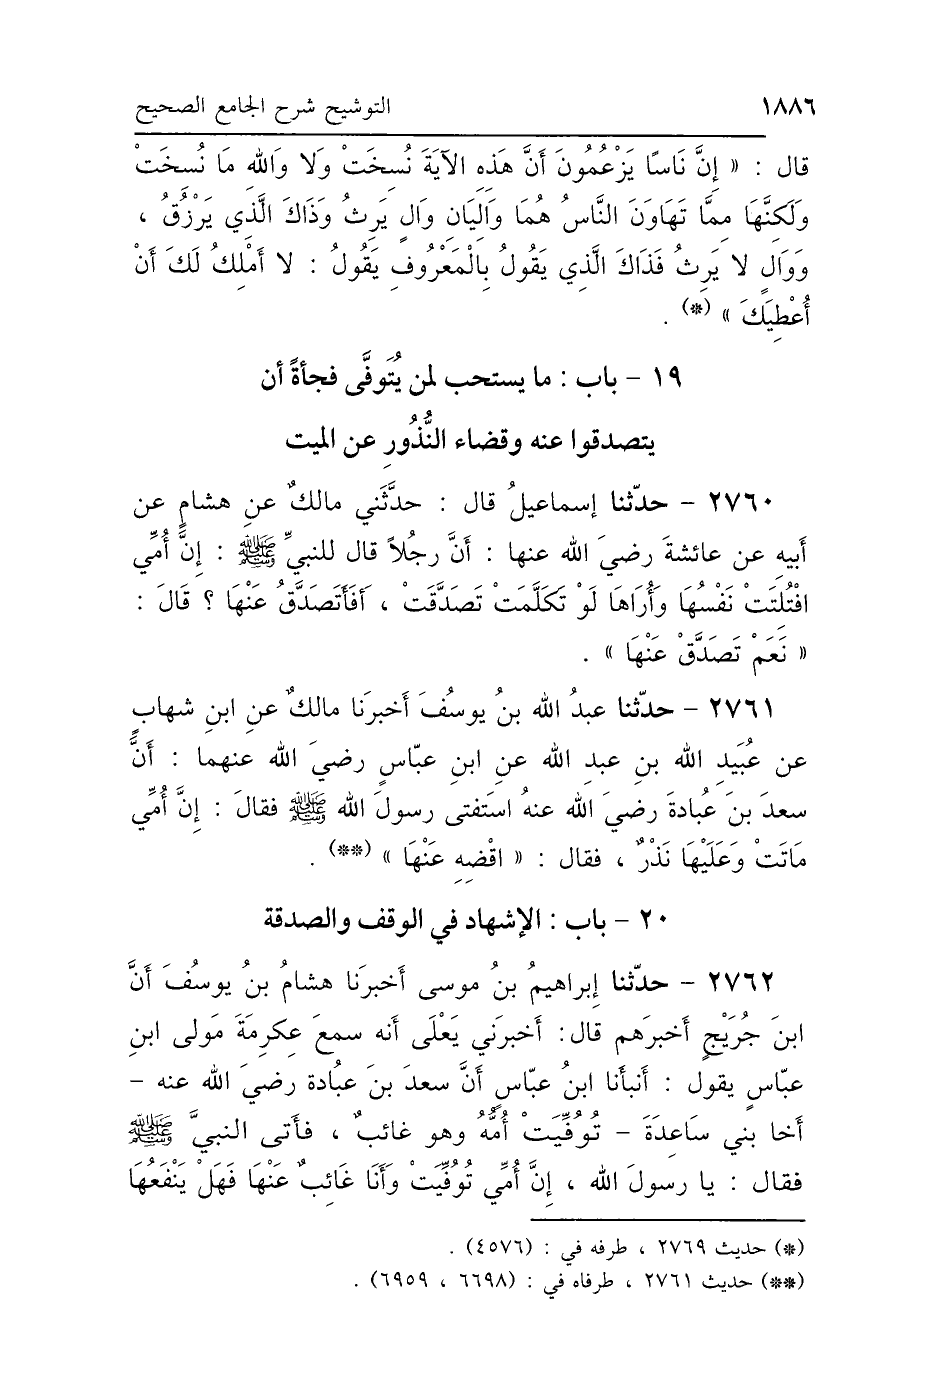 ١٨٨٦ التوشيح شرح الجامع الصحيح
قال : « إِنَّ نَاسًا يَزْعُمُونَ أَنَّ هَذِهِ الآيَةَ نُسِخَتْ وَلا وَاللهِ مَا نُسِخَتْ
وَلَكِنَّهَا مِمَّا تَهَاوَنَ النَّاسُ هُمَا وَالِيَانِ وَالٍ يَرِثُ وَذَاكَ الَّذِي يَرْزُقُ ،
وَوَالٍ لا يَرِثُ فَذَاكَ الَّذِي يَقُولُ بِالْمَعْرُوفِ يَقُولُ : لا أَمْلِكُ لَكَ أَنْ
أُعْطِيَكَ » (*) .
١٩ - باب : ما يستحب لمن يُتَوفَّى فجأةً أن
يتصدقوا عنه وقضاء النُّذُورِ عن الميت
٢٧٦٠ - حدّثنا إسماعيلُ قال : حدَّثَني مالكٌ عنِ هشامٍ عن
أبيهِ عن عائشةَ رضيَ الله عنها : أنَّ رجُلاً قال للنبيِّ ﷺ : إِنَّ أُمِّي
افْتُلِتَتْ نَفْسُهَا وَأُرَاهَا لَوْ تَكَلَّمَتْ تَصَدَّقَت ، أَفَأَتَصَدَّقُ عَنْهَا ؟ قَالَ :
« نَعَمْ تَصَدَّقْ عَنْهَا » .
٢٧٦١ - حدّثنا عبدُ الله بنُ يوسُفَ أخبرَنا مالكٌ عنِ ابنِ شهابٍ
عن عُبَيدِ الله بنِ عبدِ الله عنِ ابنِ عبّاسٍ رضيَ الله عنهما : أنَّ
سعدَ بنَ عُبادةَ رضيَ الله عنهُ استَفتى رسولَ الله ﷺ فقالَ : إِنَّ أُمِّي
مَاتَتْ وَعَلَيْهَا نَذْرٌ ، فقال : « اقْضِهِ عَنْهَا » (**) .
٢٠ - باب : الإشهاد في الوقف والصدقة
٢٧٦٢ - حدّثنا إبراهيمُ بنُ موسى أخبرَنا هشامُ بنُ يوسُفَ أنَّ
ابنَ جُرَيْجٍ أخبرَهم قال: أخبرَني يَعْلَى أنه سمعَ عِكرِمَةَ مَولى ابنِ
عبّاسٍ يقول : أنبأنا ابنُ عبّاسٍ أنَّ سعدَ بنَ عبُادة رضيَ الله عنه -
أخا بني سَاعِدَةَ - تُوُفِّيَتْ أُمُّهُ وهو غائبٌ ، فأتى النبيَّ ﷺ
فقال : يا رسولَ الله ، إِنَّ أُمِّي تُوُفِّيَتْ وَأَنَا غَائِبٌ عَنْهَا فَهَلْ يَنْفَعُهَا
(*) حديث ٢٧٦٩ ، طرفه في : (٤٥٧٦) .
(**) حديث ٢٧٦١ ، طرفاه في : (٦٦٩٨ ، ٦٩٥٩) .